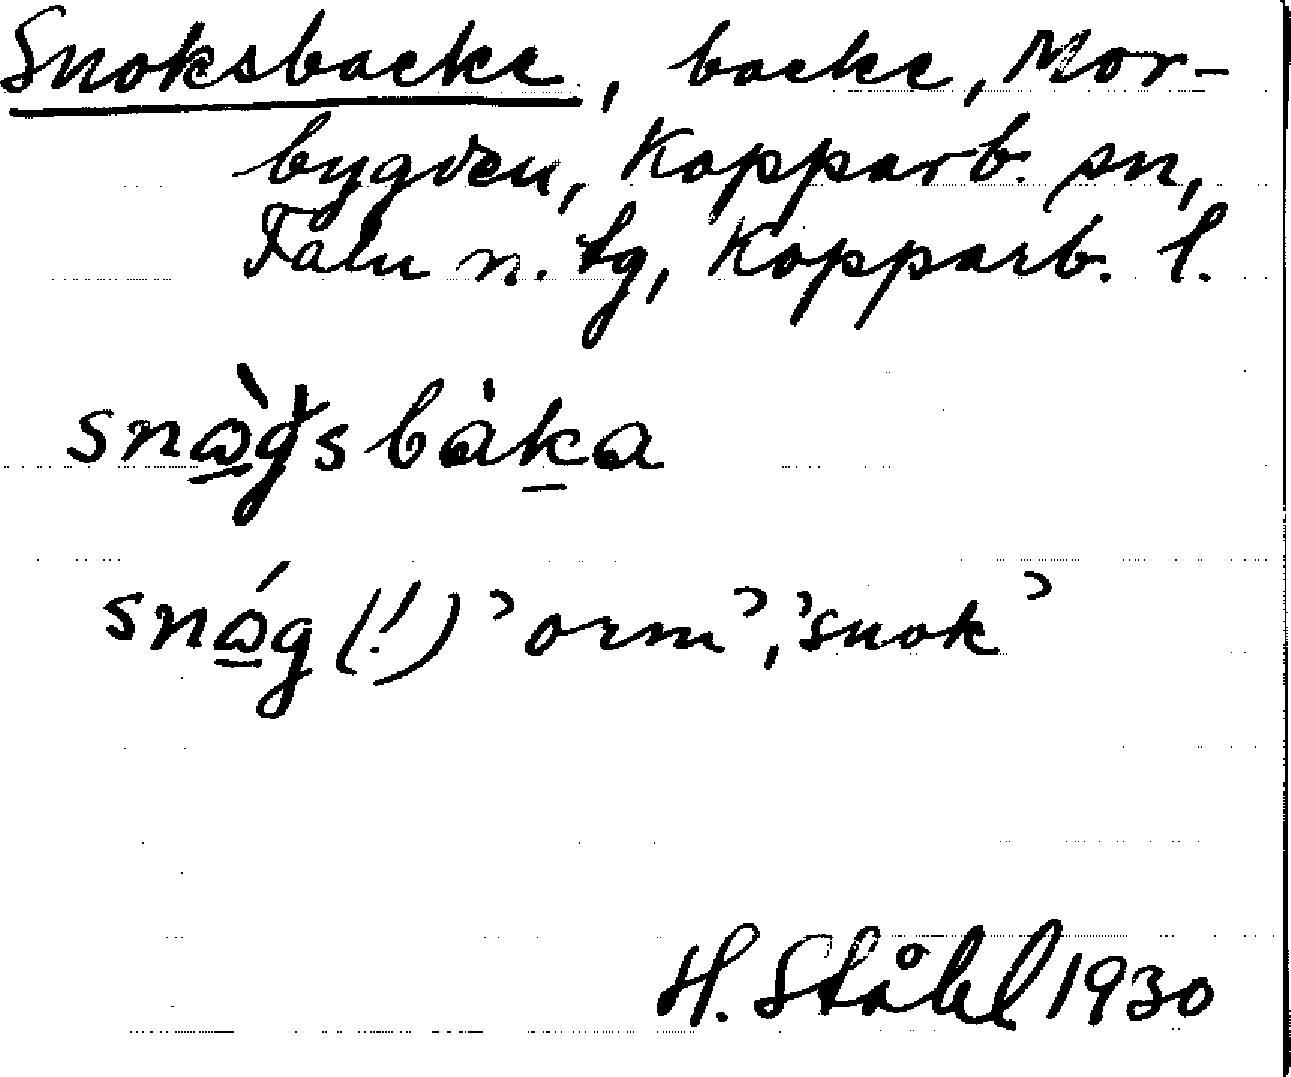 Snoksbacke, backe, Mor-
bygden, Kopparb. sn,
Falu n. tg, Kopparb. l.
snὼ̲gsbàk̲a
snώ̲g(!) ’orm’, ’snok’
H. Ståhl 1930